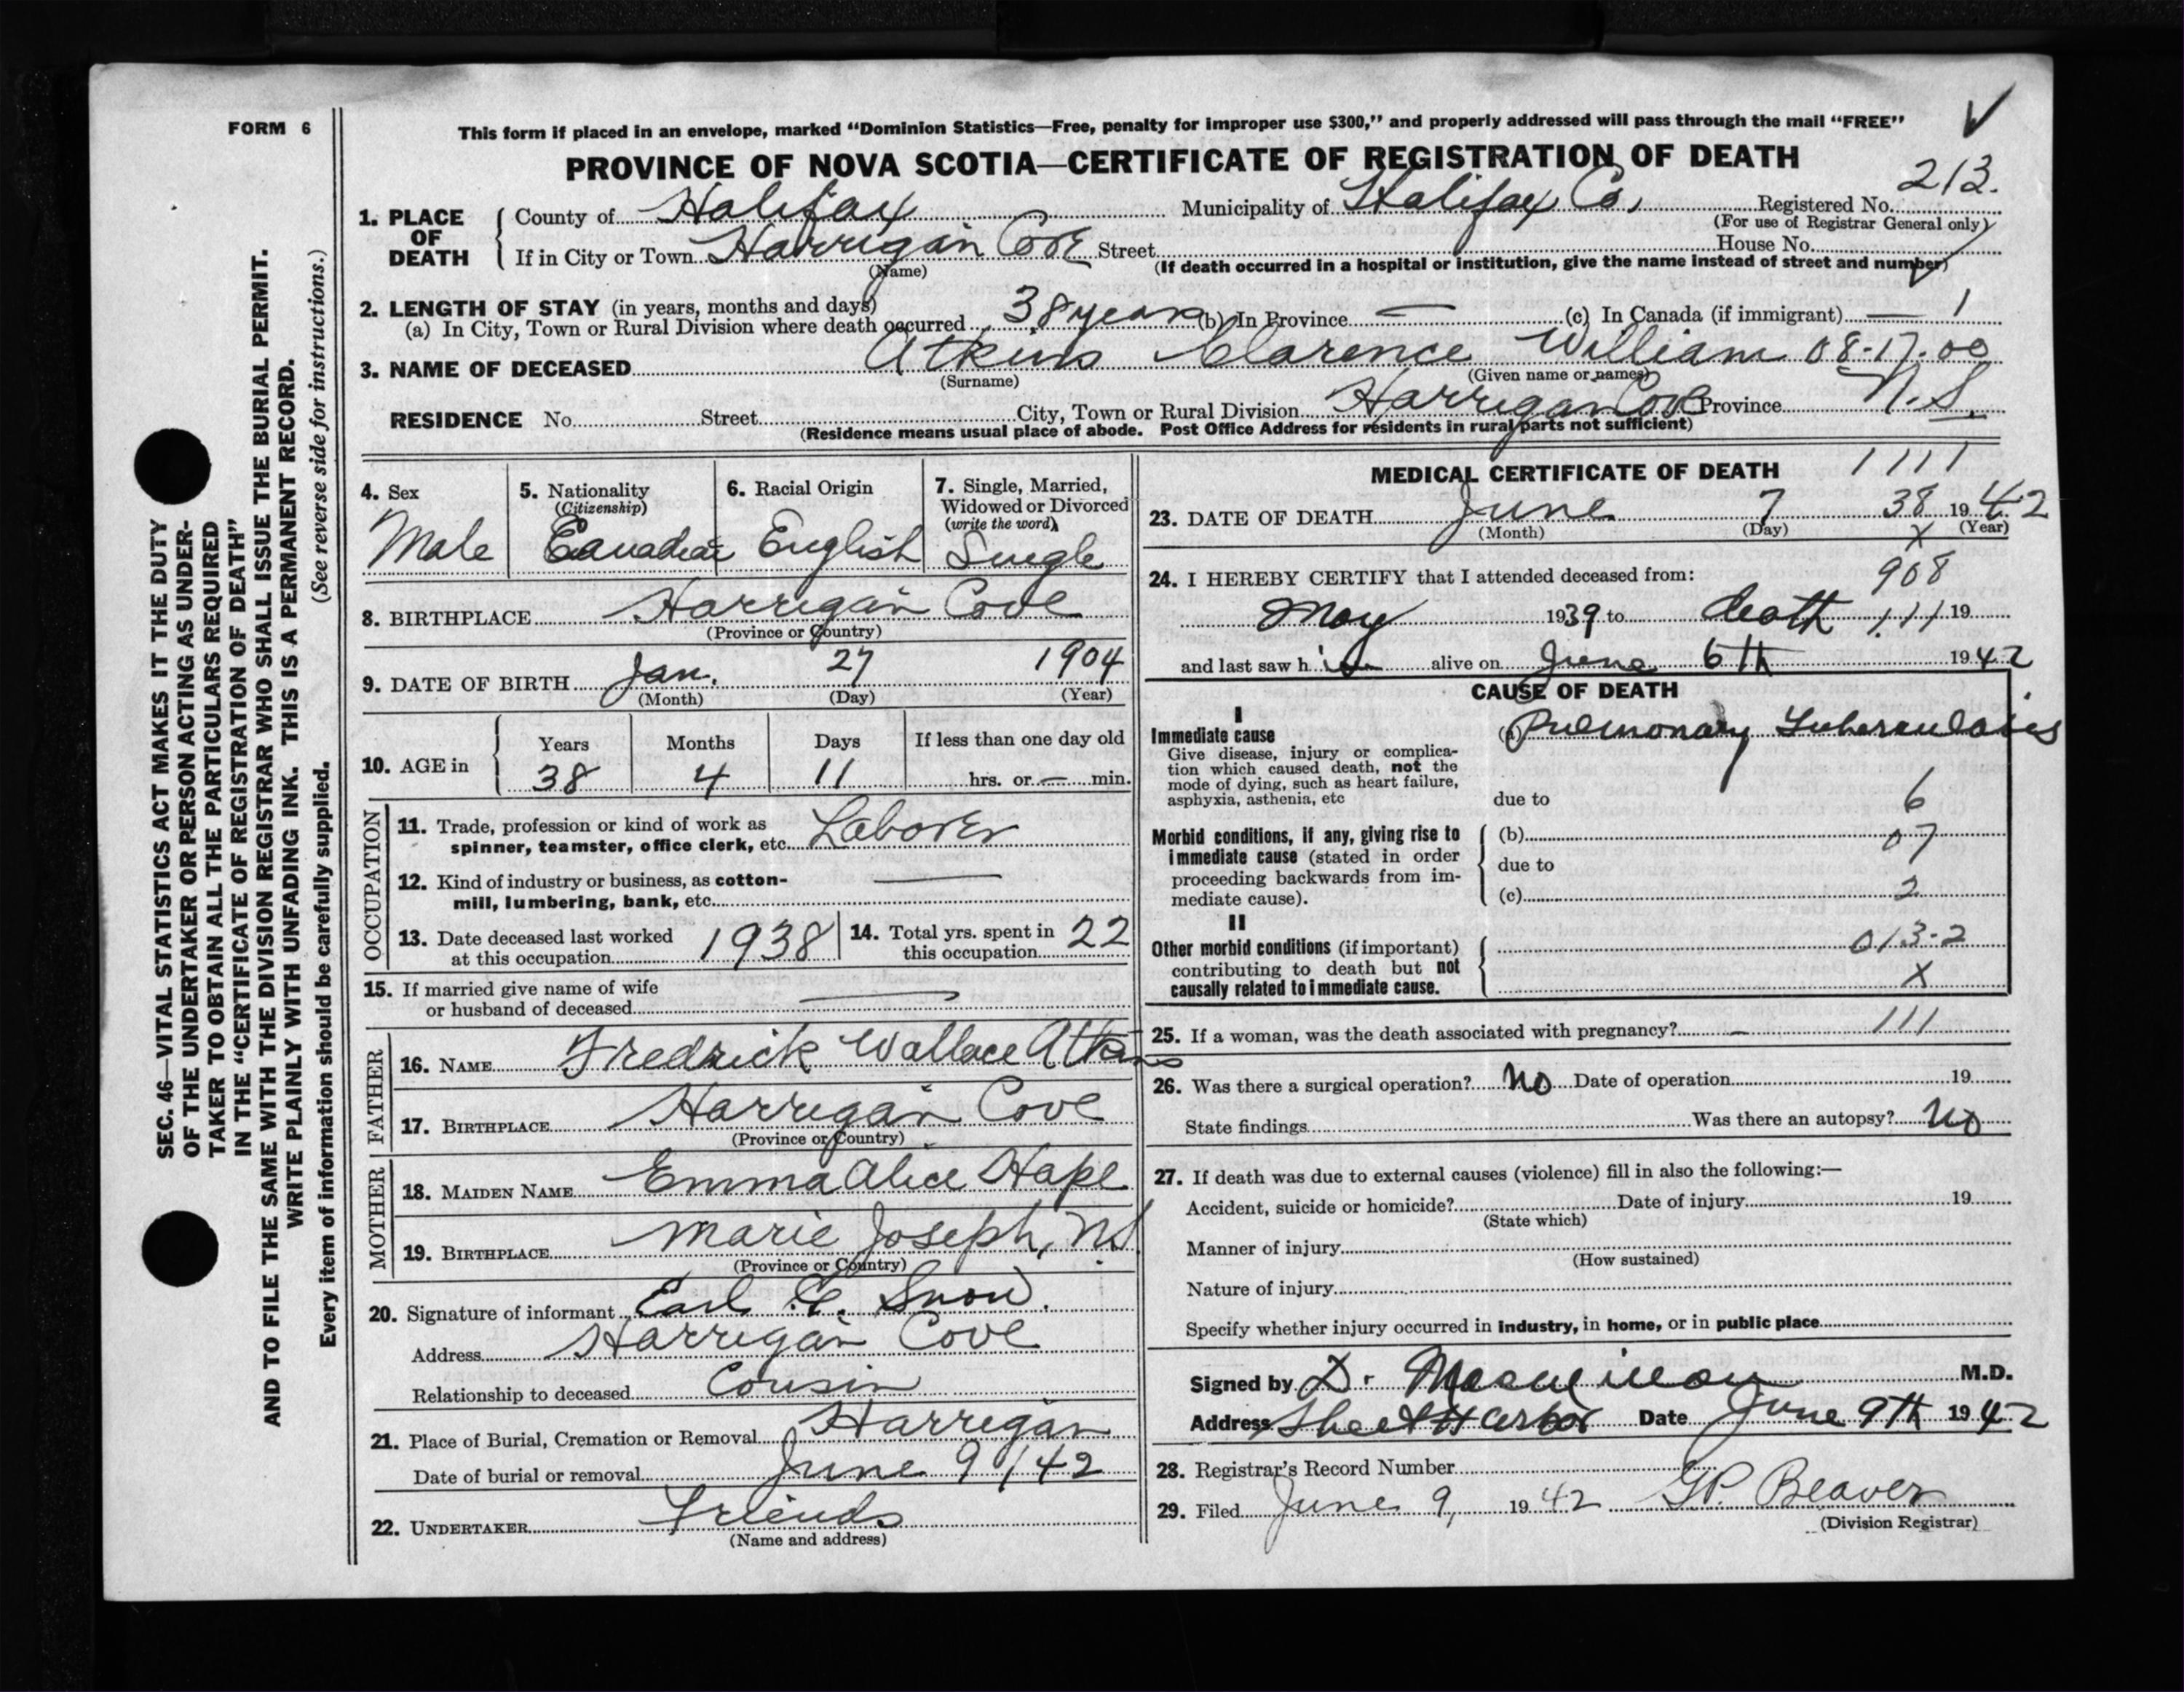 FORM 6
This form if placed in an envelope, marked "Dominion Statistics—Free, penalty for improper use $300," and properly addressed will pass through the mail "FREE"
PROVINCE OF NOVA SCOTIA—CERTIFICATE OF REGISTRATION OF DEATH
213.
1. PLACE OF DEATH { County of Halifax Municipality of Halifax Co. Registered No.
(For use of Registrar General only)
If in City or Town Harrigan Cove Street House No.
(Name) (If death occurred in a hospital or institution, give the name instead of street and number)
2. LENGTH OF STAY (in years, months and days)
(a) In City, Town or Rural Division where death occurred 38 years (b) In Province — (c) In Canada (if immigrant) — 1
3. NAME OF DECEASED Atkins Clarence William 08-17-00
(Surname) (Given name or names)
RESIDENCE No. Street City, Town or Rural Division Harrigan Cove Province N.S.
(Residence means usual place of abode. Post Office Address for residents in rural parts not sufficient)
4. Sex Male
5. Nationality (Citizenship) Canadian
6. Racial Origin English
7. Single, Married, Widowed or Divorced (write the word) Single
8. BIRTHPLACE Harrigan Cove
(Province or Country)
9. DATE OF BIRTH Jan. 27 1904
(Month) (Day) (Year)
10. AGE in { Years Months Days If less than one day old
38 4 11 hrs. or — min.
OCCUPATION
11. Trade, profession or kind of work as
spinner, teamster, office clerk, etc. Laborer
12. Kind of industry or business, as cotton-
mill, lumbering, bank, etc. —
13. Date deceased last worked
at this occupation 1938
14. Total yrs. spent in
this occupation 22
15. If married give name of wife
or husband of deceased —
FATHER
16. NAME Fredrick Wallace Atkins
17. BIRTHPLACE Harrigan Cove
(Province or Country)
MOTHER
18. MAIDEN NAME Emma Alice Hapl
19. BIRTHPLACE Marie Joseph, N.S.
(Province or Country)
20. Signature of informant Earl Snow.
Address Harrigan Cove
Relationship to deceased Cousin
21. Place of Burial, Cremation or Removal Harrigan
Date of burial or removal June 9/42
22. UNDERTAKER Friends
(Name and address)
MEDICAL CERTIFICATE OF DEATH 1111
23. DATE OF DEATH June 7 38 1942
(Month) (Day) X (Year)
24. I HEREBY CERTIFY that I attended deceased from: 908
May 1939 to death 111 19
and last saw him alive on June 6th 1942
CAUSE OF DEATH
I
Immediate cause (a) Pulmonary Tuberculosis
Give disease, injury or complica-
tion which caused death, not the
mode of dying, such as heart failure,
asphyxia, asthenia, etc due to 6
Morbid conditions, if any, giving rise to
immediate cause (stated in order
proceeding backwards from im-
mediate cause).
(b) 07
due to
(c) 2
II
Other morbid conditions (if important)
contributing to death but not
causally related to immediate cause.
013-2
X
25. If a woman, was the death associated with pregnancy? — 111
26. Was there a surgical operation? No Date of operation 19
State findings Was there an autopsy? No
27. If death was due to external causes (violence) fill in also the following:—
Accident, suicide or homicide? Date of injury 19
(State which)
Manner of injury
(How sustained)
Nature of injury
Specify whether injury occurred in industry, in home, or in public place
Signed by D. Macmillan M.D.
Address Sheet Harbor Date June 9th 1942
28. Registrar's Record Number
29. Filed June 9, 1942 G.P. Beaver
(Division Registrar)
SEC. 46—VITAL STATISTICS ACT MAKES IT THE DUTY
OF THE UNDERTAKER OR PERSON ACTING AS UNDER-
TAKER TO OBTAIN ALL THE PARTICULARS REQUIRED
IN THE "CERTIFICATE OF REGISTRATION OF DEATH"
AND TO FILE THE SAME WITH THE DIVISION REGISTRAR WHO SHALL ISSUE THE BURIAL PERMIT.
WRITE PLAINLY WITH UNFADING INK. THIS IS A PERMANENT RECORD.
(See reverse side for instructions.)
Every item of information should be carefully supplied.